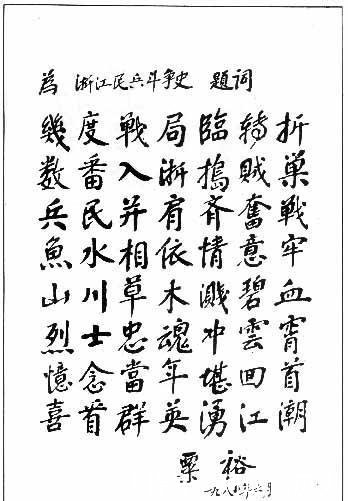 為 浙江民兵斗争史 題詞
幾度戰局臨轉折
数番入浙搗賊巢
兵民并肩齐奮戰
魚水相依情意牢
山川草木溅碧血
烈士忠魂冲雲霄
憶念當年堪回首
喜看群英湧江潮
粟裕
一九八 年六月